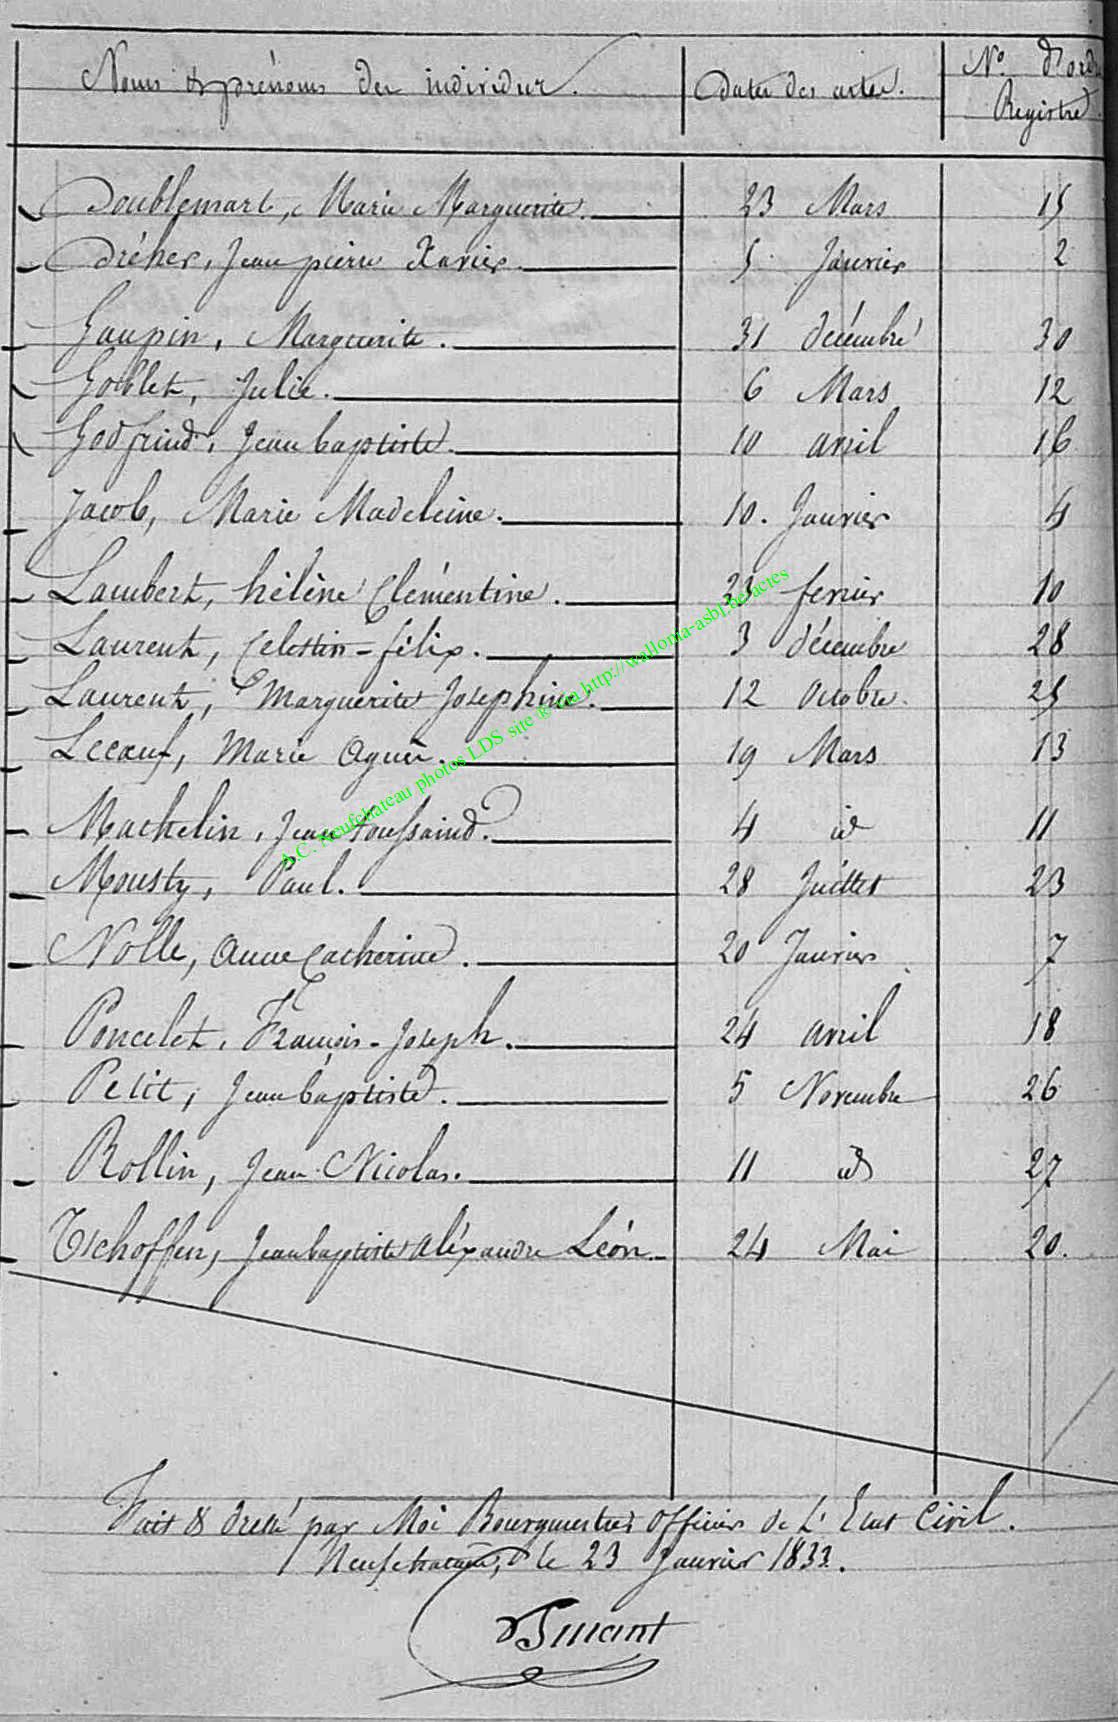 Noms & prénoms des individus. Dates des actes. No. d'ordre
Registre
Doublemart, Marie Marguerite. 23 Mars 15
Dréher, Jean pierre Xavier. 5 Janvier 2
Gaupin, Marguerite. 31 décembre 30
Goblet, Julie. 6 Mars 12
Godfrind, Jean baptiste. 10 avril 16
Jacob, Marie Madeleine. 10. Janvier 4
Lambert, hélène Clémentine. fevrier 10
Laurent, Celestin-félix. 3 décembre 28
Laurent, Marguerite Josephine. 12 Octobre. 25
Lecœuf, Marie Agnès. 19 Mars 13
Machelin, Jean toussaind. 4 id 11
Mousty, Paul. 28 Juillet 23
Nolle, Anne Catherine. 20 Janvier 7
Poncelet, François-Joseph. 24 avril 18
Petit, Jean baptiste. 5 Novembre 26
Rollin, Jean Nicolas. 11 id 27
Tschoffen, Jean baptiste aléxandre Léon 24 Mai 20.
Fait & dressé par Moi Bourgmestre officier de L'Etat Civil.
Neufchateau, le 23 Janvier 1833.
A.C. Neufchateau photos LDS site ® via http://wallonia-asbl.be/actes